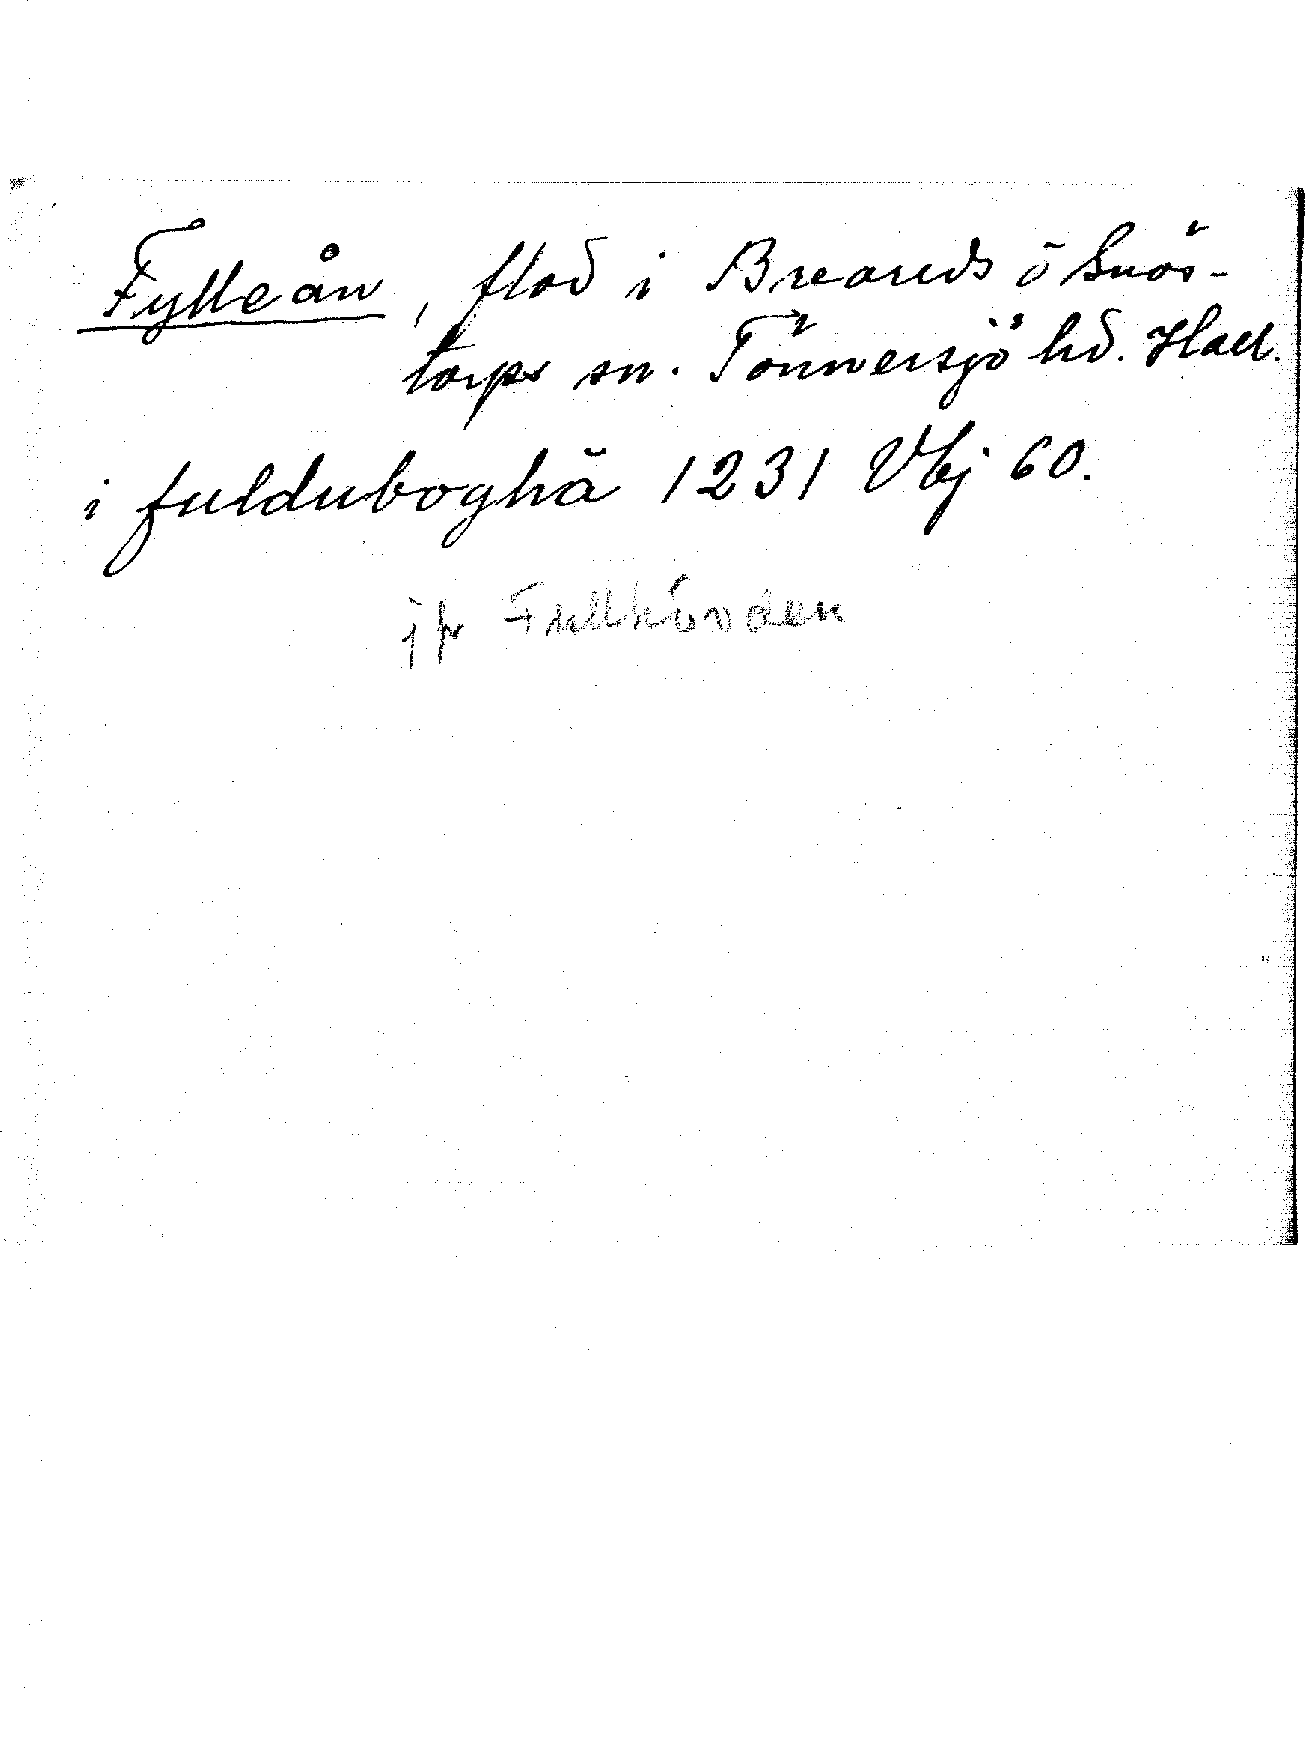 Fylleån, flod i Breareds o Snös-
torps sn. Tönnersjö hd. Hall.
i fulduboghã 1231 Vbj 60.
jfr Fullhövden